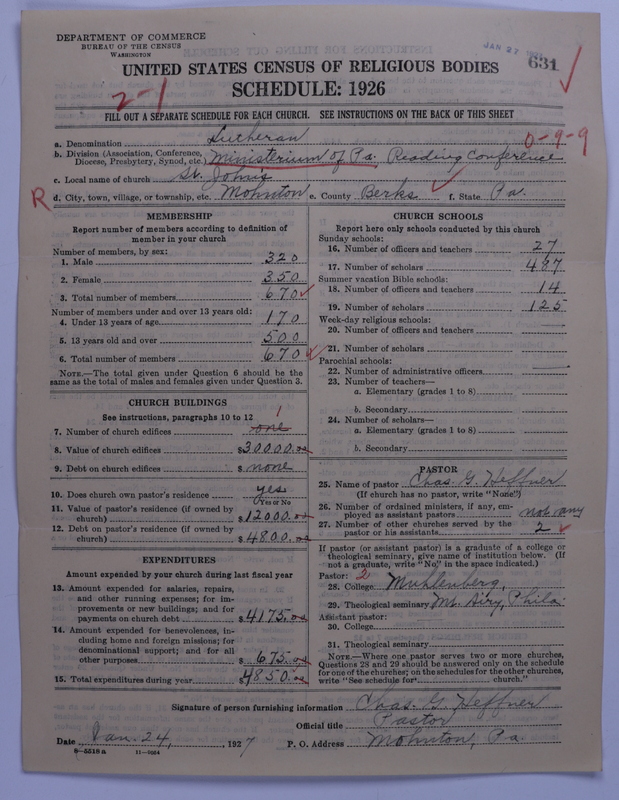 DEPARTMENT OF COMMERCE
BUREAU OF THE CENSUS
WASHINGTON
JAN 27
631
UNITED STATES CENSUS OF RELIGIOUS BODIES
SCHEDULE: 1926
2-1
FILL OUT A SEPARATE SCHEDULE FOR EACH CHURCH. SEE INSTRUCTIONS ON THE BACK OF THIS SHEET
a. Denomination Lutheran
0-9-9
b. Division (Association, Conference, Diocese, Presbytery, Synod, etc.) Ministerium of Pa. Reading Conference
c. Local name of church St. Johns
R d. City, town, village, or township, etc. Mohnton e. County Berks f. State Pa.
MEMBERSHIP
Report number of members according to definition of
member in your church
Number of members, by sex:
1. Male 320
2. Female 350
3. Total number of members 670
Number of members under and over 13 years old:
4. Under 13 years of age 170
5. 13 years old and over 500
6. Total number of members 670
NOTE.—The total given under Question 6 should be the
same as the total of males and females given under Question 3.
CHURCH BUILDINGS
See instructions, paragraphs 10 to 12
1
7. Number of church edifices one
8. Value of church edifices $30000.00
9. Debt on church edifices $ none
10. Does church own pastor's residence yes
Yes or No
11. Value of pastor's residence (if owned by
church) $12000.00
12. Debt on pastor's residence (if owned by
church) $4800.00
EXPENDITURES
Amount expended by your church during last fiscal year
13. Amount expended for salaries, repairs,
and other running expenses; for im-
provements or new buildings; and for
payments on church debt $4175.00
14. Amount expended for benevolences, in-
cluding home and foreign missions; for
denominational support; and for all
other purposes $675.00
15. Total expenditures during year $4850.00
CHURCH SCHOOLS
Report here only schools conducted by this church
Sunday schools:
16. Number of officers and teachers 27
17. Number of scholars 487
Summer vacation Bible schools:
18. Number of officers and teachers 14
19. Number of scholars 125
Week-day religious schools:
20. Number of officers and teachers
21. Number of scholars
Parochial schools:
22. Number of administrative officers
23. Number of teachers—
a. Elementary (grades 1 to 8)
b. Secondary
24. Number of scholars—
a. Elementary (grades 1 to 8)
b. Secondary
PASTOR
25. Name of pastor Chas. G. Heffner
(If church has no pastor, write "None")
26. Number of ordained ministers, if any, em-
ployed as assistant pastors not any
27. Number of other churches served by the
pastor or his assistants 2
If pastor (or assistant pastor) is a graduate of a college or
theological seminary, give name of institution below. (If
not a graduate, write "No" in the space indicated.)
Pastor: 2
28. College Muhlenberg,
29. Theological seminary Mt. Airy, Phila.
Assistant pastor:
30. College
31. Theological seminary
NOTE.—Where one pastor serves two or more churches,
Questions 28 and 29 should be answered only on the schedule
for one of the churches; on the schedules for the other churches,
write "See schedule for church."
Signature of person furnishing information Chas. G. Heffner
Official title Pastor
Date Jan. 24, 1927 P. O. Address Mohnton, Pa.
8—5518 a 11—9054